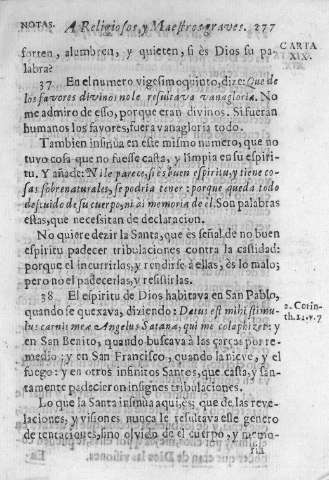 NOTAS. A Religiosos, y Maestros graves. 277
forten, alumbren, y quieten, si es Dios su pa-
labra?
CARTA
XIX.
37 En el numero vigesimoquinto, dize: Que de
los favores divinos no le resultava vanagloria. No
me admiro de esso, porque eran divinos. Si fueran
humanos los favores, fuera vanagloria todo.
Tambien insinùa en este mismo numero, que no
tuvo cosa que no fuesse casta, y limpia en su espiri-
tu. Y añade: Ni le parece, si es buen espiritu, y tiene co-
sas sobrenaturales, se podria tener: porque queda todo
descuido de su cuerpo, ni ai memoria de èl. Son palabras
estas, que necessitan de declaracion.
No quiere dezir la Santa, que es señal de no buen
espiritu padecer tribulaciones contra la castidad:
porque el incurrirlos, y rendirse à ellas, es lo malo;
pero no el padecerlas, y resistirlas.
38 El espiritu de Dios habitava en San Pablo,
quando se quexava, diziendo: Datus est mihi stimu-
lus carnis meæ Angelus Satanæ, qui me colaphizet: y
2. Corin-
th. 12. v. 7
en San Benito, quando buscava à las çarças por re-
medio; y en San Francisco, quando la nieve, y el
fuego: y en otros infinitos Santos, que casta, y san-
tamente padecieron insignes tribulaciones.
Lo que la Santa insinùa aqui, es; que de las reve-
laciones, y visiones nunca le resultava esse genero
de tentaciones, sino olvido de el cuerpo, y memo-
ria